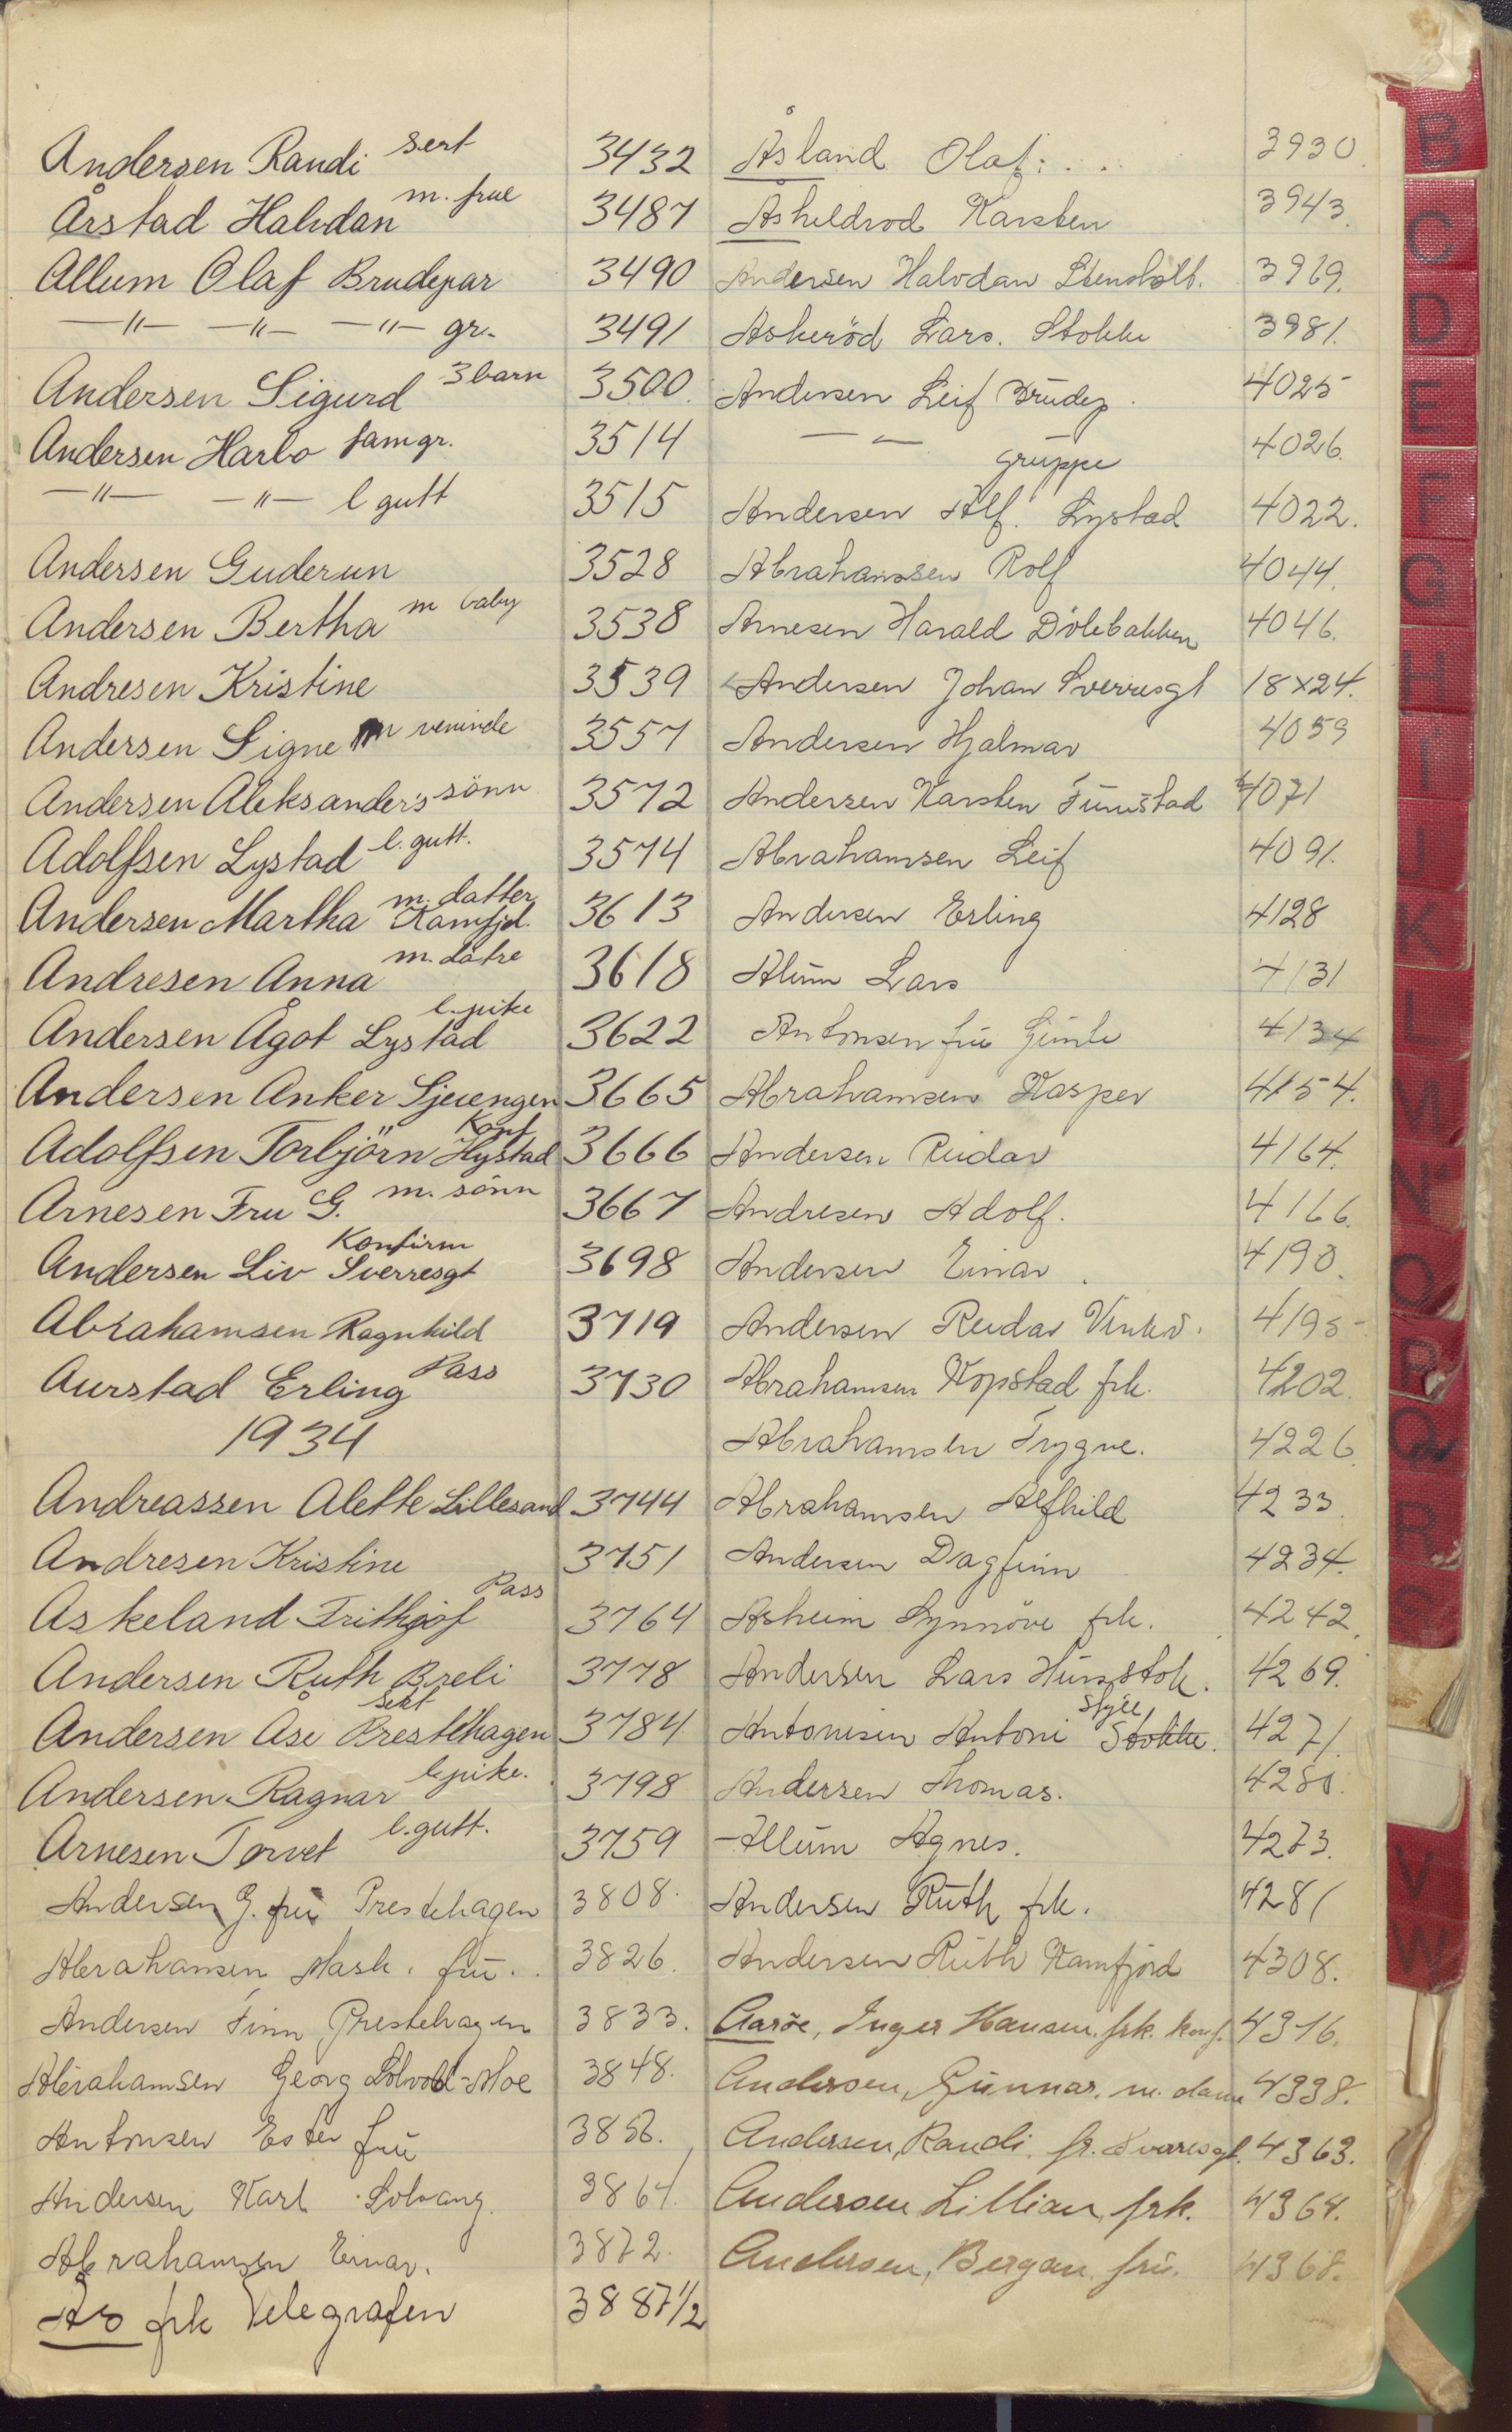 Andersen Randi sert 3432
Årstad Halvdan m. frue 3487
Allum Olaf Brudepar 3490
—"— —"— —"— gr. 3491
Andersen Sigurd 3 barn 3500
Andersen Harbo famgr. 3514
—"— —"— l gutt 3515
Andersen Guderun 3528
Andersen Bertha m baby 3538
Andresen Kristine 3539
Andersen Signe m veninde 3557
Andersen Aleksander's sönn 3572
Adolfsen Lystad l. gutt. 3574
Andersen Martha m. datter Kamfjd. 3613
Andresen Anna m. døtre 3618
Andersen Ågot Lystad l. pike 3622
Andersen Anker Sjeuengen 3665
Adolfsen Torbjörn Hystad Konf 3666
Arnesen Fru G. m. sönn 3667
Andersen Liv Sverresgt Konfirm 3698
Abrahamsen Ragnhild 3719
Aurstad Erling Pass 3730
1934
Andreassen Alette Lillesand 3744
Andresen Kristine 3751
Askeland Frithjof Pass 3764
Andersen Ruth Breli 3778
Andersen Åse Prestehagen sekt 3784
Andersen Ragnar l. pike. 3798
Arnesen Torvet l. gutt. 3759
Andersen G. frü Prestehagen 3808.
Abrahamsen Mask. frü. 3826.
Andersen Finn Prestehagen 3833.
Abrahamsen Georg Moe 3848.
Antonsen Ester frü 3856.
Andersen Karl Solvang. 3864.
Abrahamsen Einar. 3872.
Ås frk Telegrafen 3887 1/2
Åsland Olaf: . . 3930.
Åshildrod Karsten 3943.
Andersen Halvdan Stensholt. 3969.
Askeröd Lars. Stokke 3981.
Andersen Leif Brüdep. 4025
— " — grüppe 4026.
Andersen Alf. Lystad 4022.
Abrahamsen Rolf 4044.
Arnesen Harald Dölebakken 4046.
Andersen Johan Sverresgt 18x24.
Andersen Hjalmar 4059
Andersen Karsten Fürüstad 4071
Abrahamsen Leif 4091.
Andersen Erling 4128
Alüm Lars 4131
Antonsen frü Gimle 4134
Abrahamsen Kasper 4154.
Andersen Reidar 4164.
Andresen Adolf. 4166.
Andersen Einar. 4190.
Andersen Reidar 4195-
Abrahamsen Kopstad frk. 4202.
Abrahamsen Trygve. 4226
Abrahamsen Alfhild 4233.
Andersen Dagfinn 4234.
Åsheim Synnöve frk. 4242.
Andersen Lars Hünstok. 4269.
Antonisen Antoni Stokke. 4271.
Andersen Thomas. 4280.
Allüm Agnes. 4273.
Andersen Rüth frk. 4281
Andersen Rüth Kamfjord 4308.
Aaröe, Inger Hansen, frk. konf. 4316.
Andersen, Günnar. m. dame 4338.
Andersen, Randi. fr. Sverresgt. 4363.
Andersen, Lillian, frk. 4364.
Andersen, Bergan, frü. 4368.
B
C
D
E
F
G
H
I
J
K
L
M
N
O
P
Q
R
S
V
W